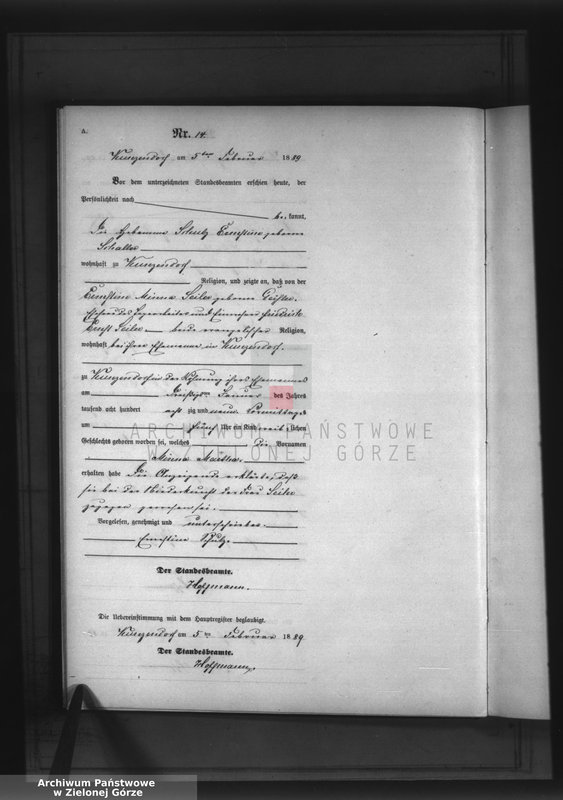 A.
Nr. 14.
Kunzendorf am 5ten Februar 1889
Vor dem unterzeichneten Standesbeamten erschien heute, der
Persönlichkeit nach
be kannt,
die Hebamme Schulz Ernestine geborne
Schaller
wohnhaft zu Kunzendorf
Religion, und zeigte an, daß von der
Ernestine Minna Seiler geborne
Ehefrau des und Einwohner Friedrich
Ernst Seiler beide evangelischer Religion,
wohnhaft bei ihrem Ehemanne in Kunzendorf.
zu Kunzendorf in der Wohnung ihres Ehemannes
am Januar des Jahres
tausend acht hundert acht zig und neun Vormittags
um fünf Uhr ein Kind weib lichen
Geschlechts geboren worden sei, welches die Vornamen
Minna Martha
erhalten habe die Anzeigende erklärte, daß
sie bei der Niederkunft der Frau Seiler
zugegen gewesen sei.
Vorgelesen, genehmigt und unterschrieben.
Ernestine Schulz
Der Standesbeamte.
Hoffmann.
Die Uebereinstimmung mit dem Hauptregister beglaubigt.
Kunzendorf am 5ten Februar 1889
Der Standesbeamte.
Hoffmann
ARCHIWUM PAŃSTWOWE
W ZIELONEJ GÓRZE
Archiwum Państwowe
w Zielonej Górze